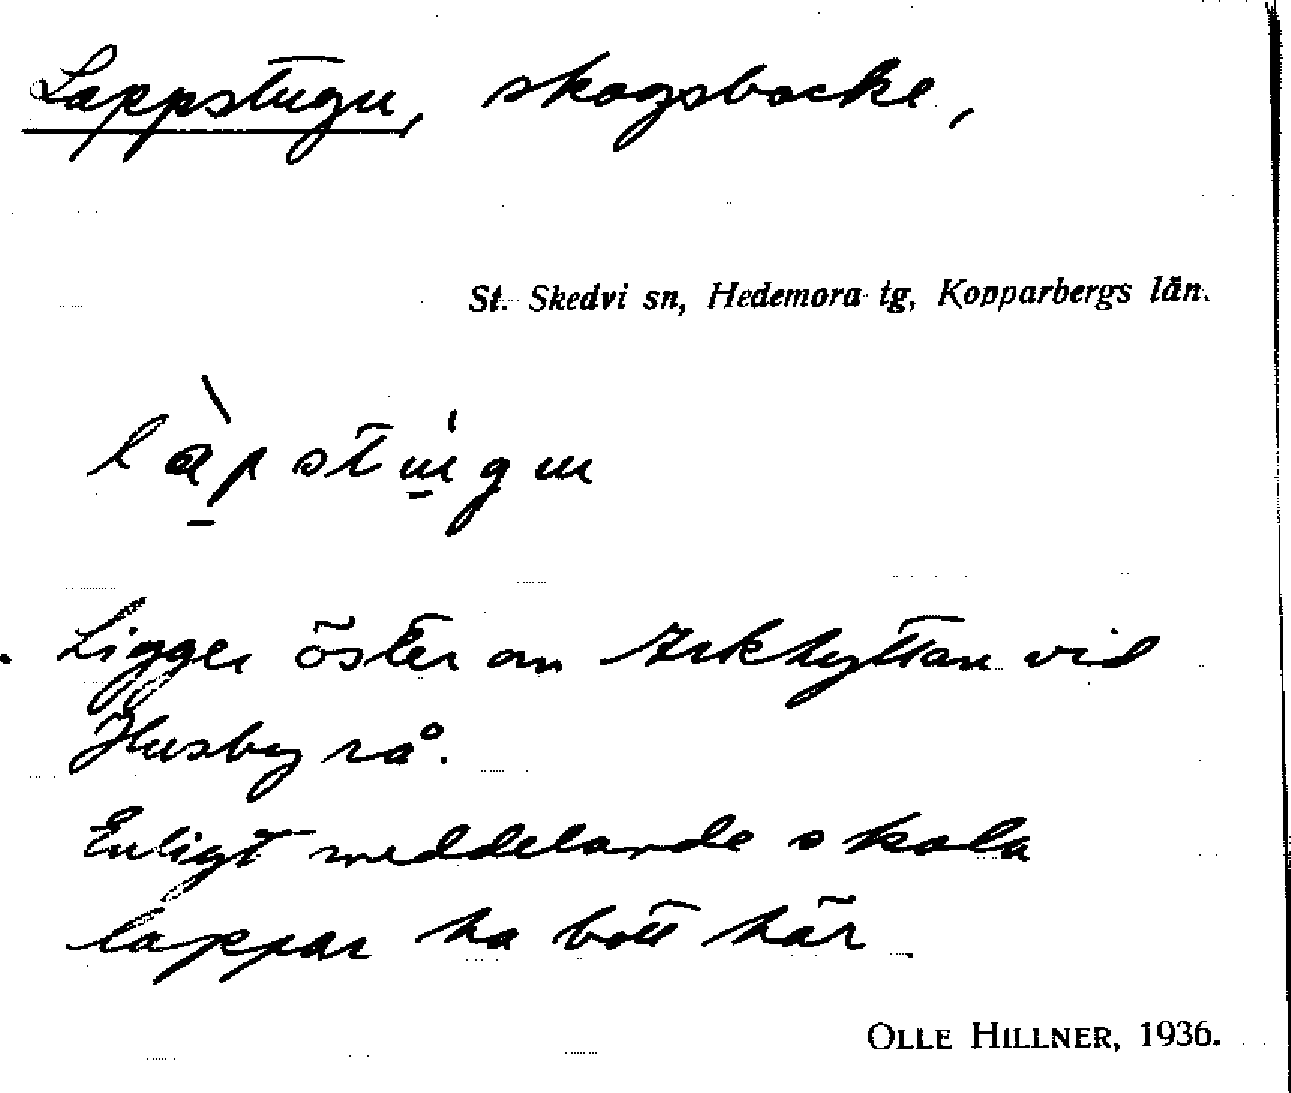 Lappstugu, skogsbacke,
St. Skedvi sn, Hedemora tg, Kopparbergs län.
làpstu̱gu
Ligger öster om Arkhyttan vid
Husby rå.
Enligt meddelande skola
lappar ha bott här.
OLLE HILLNER, 1936.